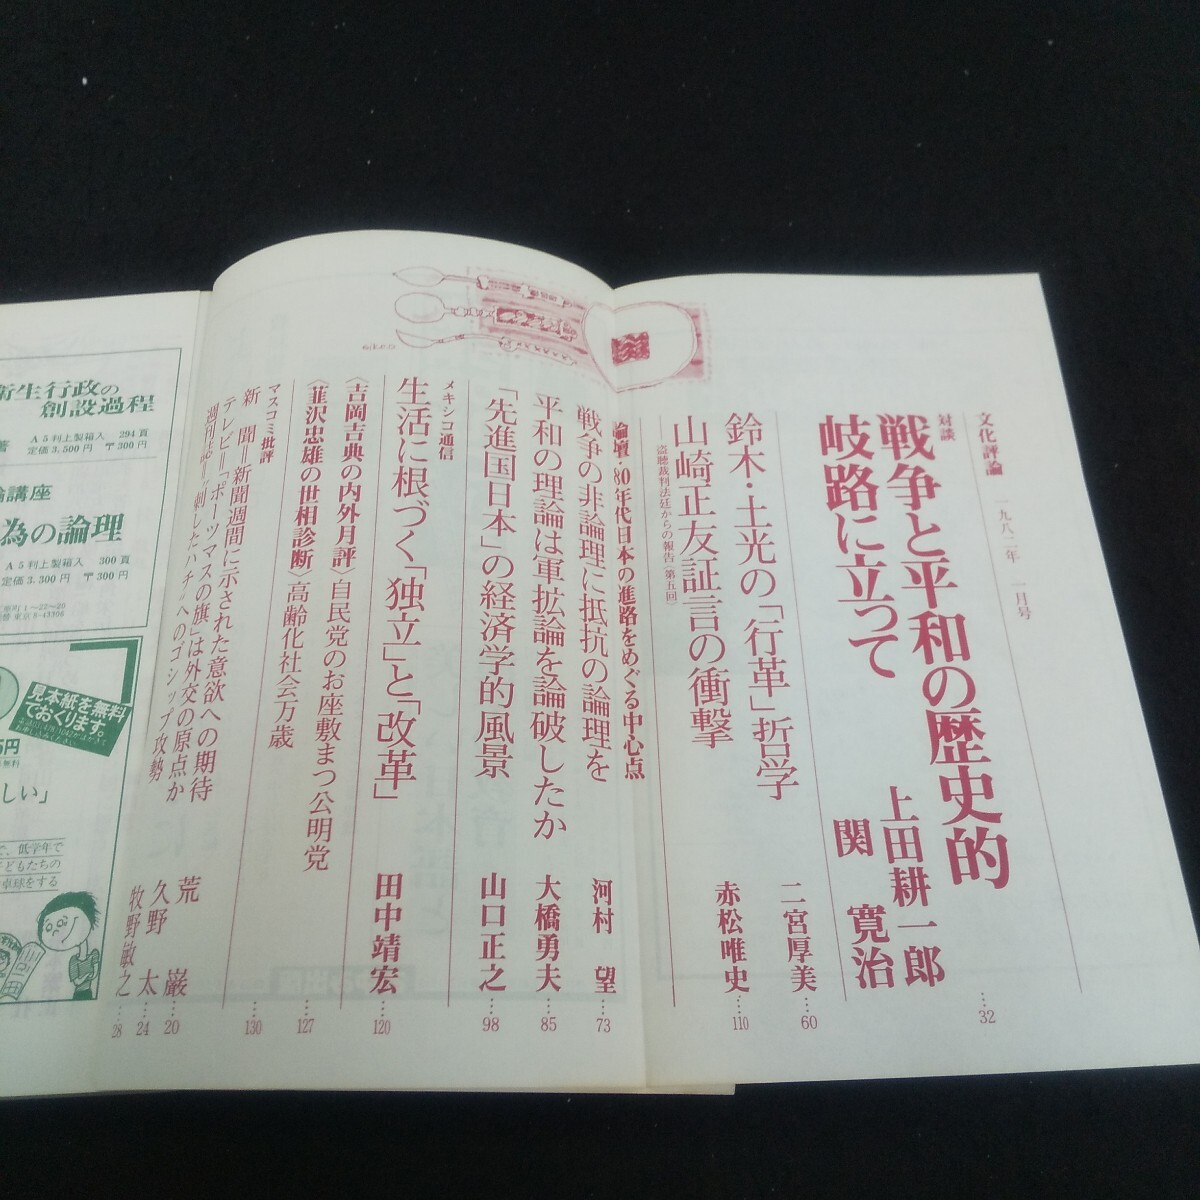 文化評論 一九八二年 一月号
対談
戦争と平和の歴史的
岐路に立って
上田耕一郎
関 寛治
……32
鈴木・土光の「行革」哲学 二宮厚美……60
山崎正友証言の衝撃 赤松唯史……110
―盗聴裁判法廷からの報告(第五回)
論壇・80年代日本の進路をめぐる中心点
戦争の非論理に抵抗の論理を 河村 望……73
平和の理論は軍拡論を論破したか 大橋勇夫……85
「先進国日本」の経済学的風景 山口正之……98
メキシコ通信
生活に根づく「独立」と「改革」 田中靖宏……120
〈吉岡吉典の内外月評〉自民党のお座敷まつ公明党……127
〈韮沢忠雄の世相診断〉高齢化社会万歳……130
マスコミ批評
新 聞=新聞週間に示された意欲への期待 荒 巌……20
テレビ=「ポーツマスの旗」は外交の原点か 久野 太……24
週刊誌="刺したハチ"へのゴシップ攻勢 牧野敏之……28
衛生行政の
創設過程
著 A5判上製箱入 294頁
定価3,500円 〒300円
論講座
為の論理
A5判上製箱入 300頁
定価3,300円 〒300円
1−22−20
東京6-43356
見本紙を無料
でおくります。
しい」
で、低学年で
こどもたちの
卓球をする